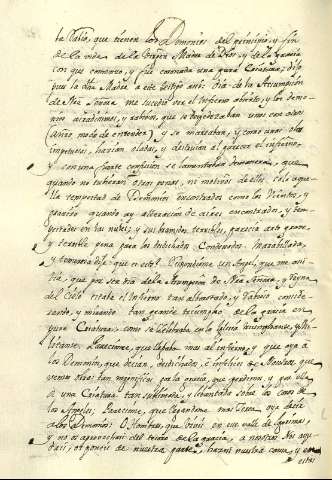 la Rabia, que tienen los Demonios del principio, y fin
de la vida de la Virgen Madre de Dios y de la gracia
con que comenzo, y fue coronada una pura Criatura; dis
puso la Dna Madre a este testigo años: Dia de la Assumpcion
de Nra Señora me sucedio ver el infierno abierto, y los demo
nios ayradissimos, y rabiosos, que se despedazaban unos con otros
(a nro modo de entender) y se maltrataban, y como unas olas
impetuosas, hacian oladas, y el infierno,
y con una fuerte confusion se lamentaban de manera, que
quando no tubieran otras penas, ni motivos de ellas, sola aque
lla tempestad de Demonios encontrados como los Vientos, y
quando ay alteracion de aires encontrados, y tem
pestades en las nubes, y sus bramidos terribles, parecia arto grave,
y terrible pena para los desdichados Condenados. Maravillada,
y temerosa dije: que es esto? Respondiome un Angel, que me asis
tia, que por ser dia de la Assumpcion de Nra Señora, y Reyna
del Cielo estaba el Infierno tan alborotado, y rabioso conside
rando, y mirando tan grande triumpho de la gracia en
pura Criatura, como se celebraba en la Iglesia triumphante, y Mi
litante. Pareciome, que bajaba mas al infierno, y que oia a
los Demonios, que decian, desdichados, e infelices de Nosotros, que
vemos obras tan magnificas por la gracia, que perdimos, y que ella
a una Criatura tan sublimada, y levantada sobre los coros de
los Angeles; Pareciome, que bajandome mas Tierra oya decir
a los Demonios: O Hombres, que Vivis en ese valle de lagrimas,
y no os aprovechais del tesoro de la gracia, a nosotros Nos ayu
dais, os poneis de nuestra parte, hazeis nuestra causa, y en
estos